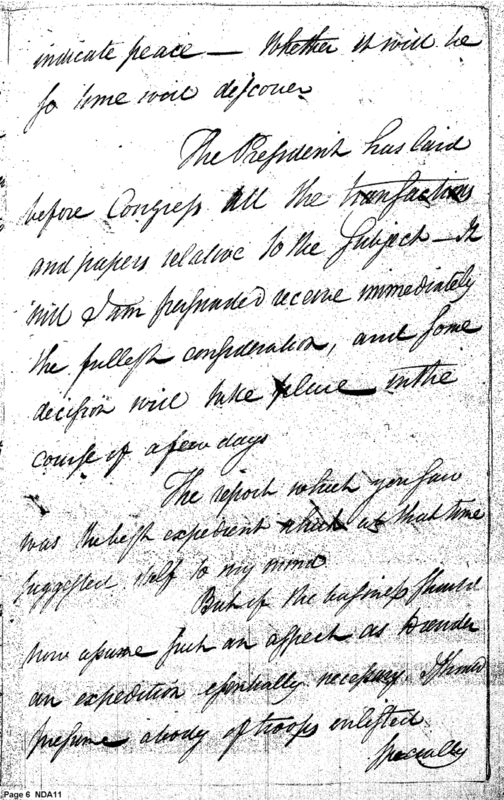 indicate peace — Whether it will be
so time will discover
The President has laid
before Congress all the transactions
and papers relative to the subject — It
will I am persuaded receive immediately
the fullest consideration, and some
decision will take place in the
course of a few days
The report which you saw
was the best expedient which at that time
suggested itself to my mind
But if the business should
now assume such an aspect as to render
an expedition essentially necessary I should
presume a body of troops enlisted
specially
Page 6 NDA11